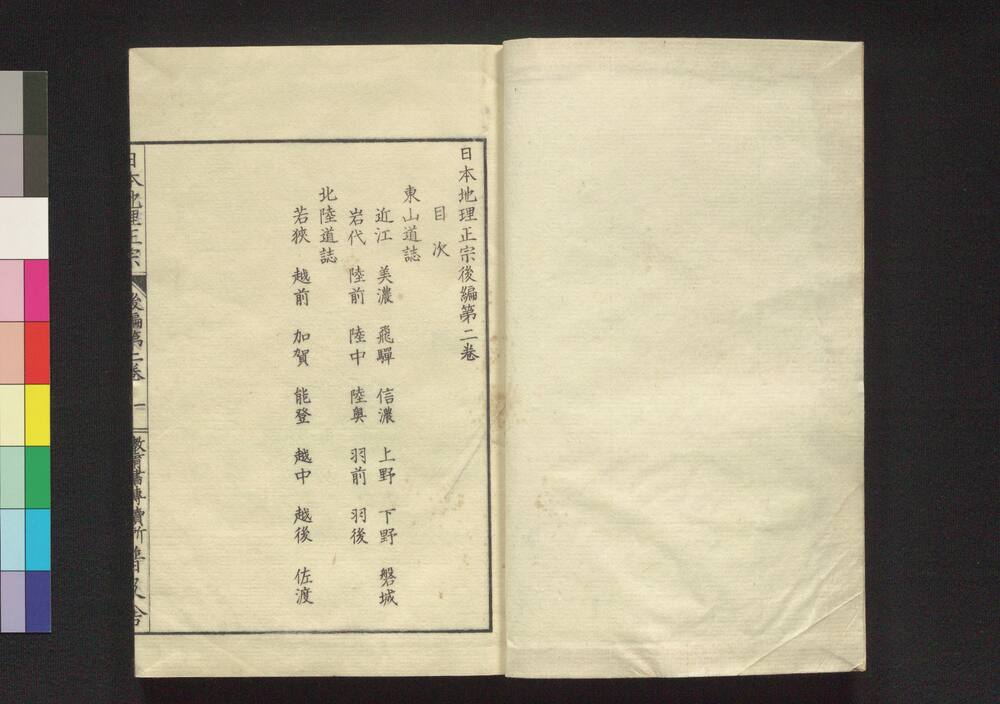 日本地理正宗後編第二卷
目次
東山道誌
近江 美濃 飛驒 信濃 上野 下野 磐城
岩代 陸前 陸中 陸奥 羽前 羽後
北陸道誌
若狹 越前 加賀 能登 越中 越後 佐渡
日本地理正宗 後編第二卷 一 教育書專賣所普及舍